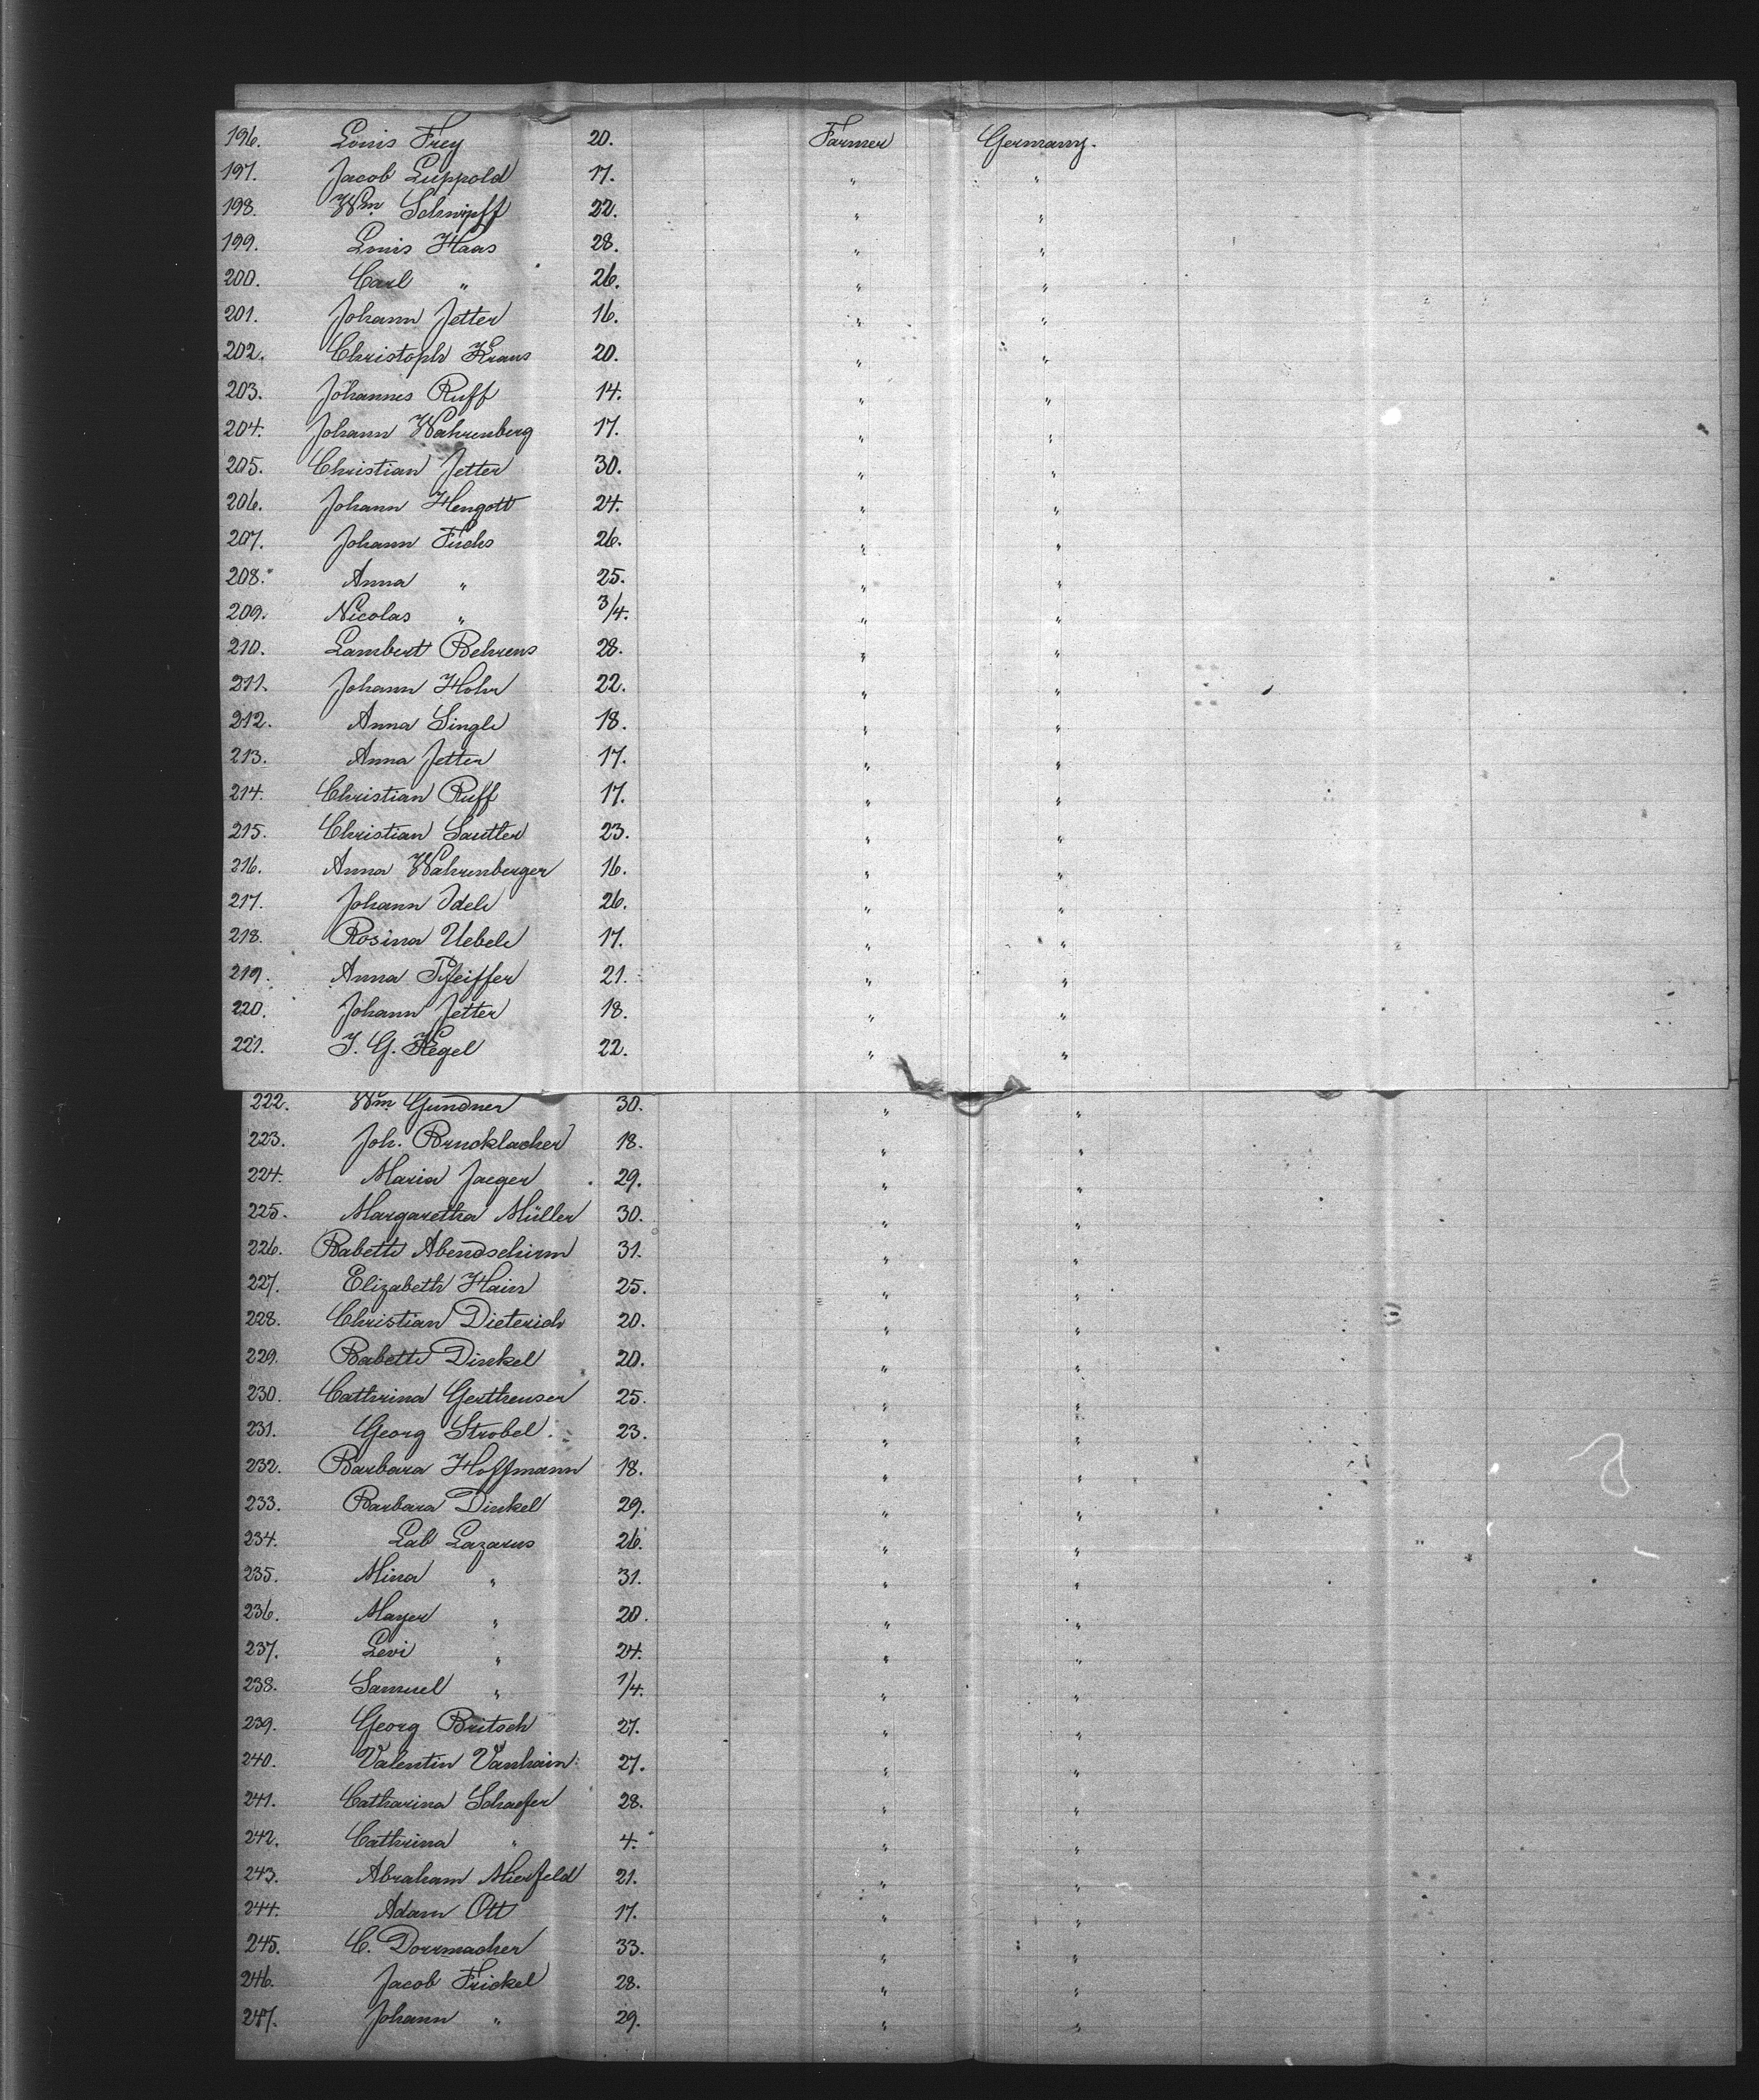 196. Louis Frey 20. Farmer Germany.
197. Jacob Luppold 17. " "
198. Wm. Schnipff 22. " "
199. Louis Haas 28. " "
200. Carl " 26. " "
201. Johann Jetter 16. " "
202. Christoph Kraus 20. " "
203. Johannes Ruff 14. " "
204. Johann Wahrenberg 17. " "
205. Christian Jetter 30. " "
206. Johann Hengott 24. " "
207. Johann Fuchs 26. " "
208. Anna " 25. " "
209. Nicolas " 3/4. " "
210. Lambert Behrens 28. " "
211. Johann Hohr 22. " "
212. Anna Single 18. " "
213. Anna Jetter 17. " "
214. Christian Ruff 17. " "
215. Christian Sautter 23. " "
216. Anna Wahrenberger 16. " "
217. Johann Idele 26. " "
218. Rosina Uebele 17. " "
219. Anna Pfeiffer 21. " "
220. Johann Jetter 18. " "
221. J. G. Hegel 22. " "
222. Wm Gundner 30. " "
223. Joh. Brucklacher 18. " "
224. Maria Jaeger 29. " "
225. Margaretha Müller 30. " "
226. Babette Abendschirm 31. " "
227. Elizabeth Hain 25. " "
228. Christian Dieterich 20. " "
229. Babette Dinkel 20. " "
230. Cathrina Gertheuser 25. " "
231. Georg Strobel. 23. " "
232. Barbara Hoffmann 18. " "
233. Barbara Dinkel 29. " "
234. Lab Lazarus 26. " "
235. Mina " 31. " "
236. Mayer " 20. " "
237. Levi " 24. " "
238. Samuel " 1/4. " "
239. Georg Britsch 27. " "
240. Valentin Vanhain 27. " "
241. Catharina Schaefer 28. " "
242. Cathrina " 4. " "
243. Abraham Mierfeld 21. " "
244. Adam Ott 17. " "
245. C. Dorrmacher 33. " "
246. Jacob Frickel 28. " "
247. Johann " 29. " "